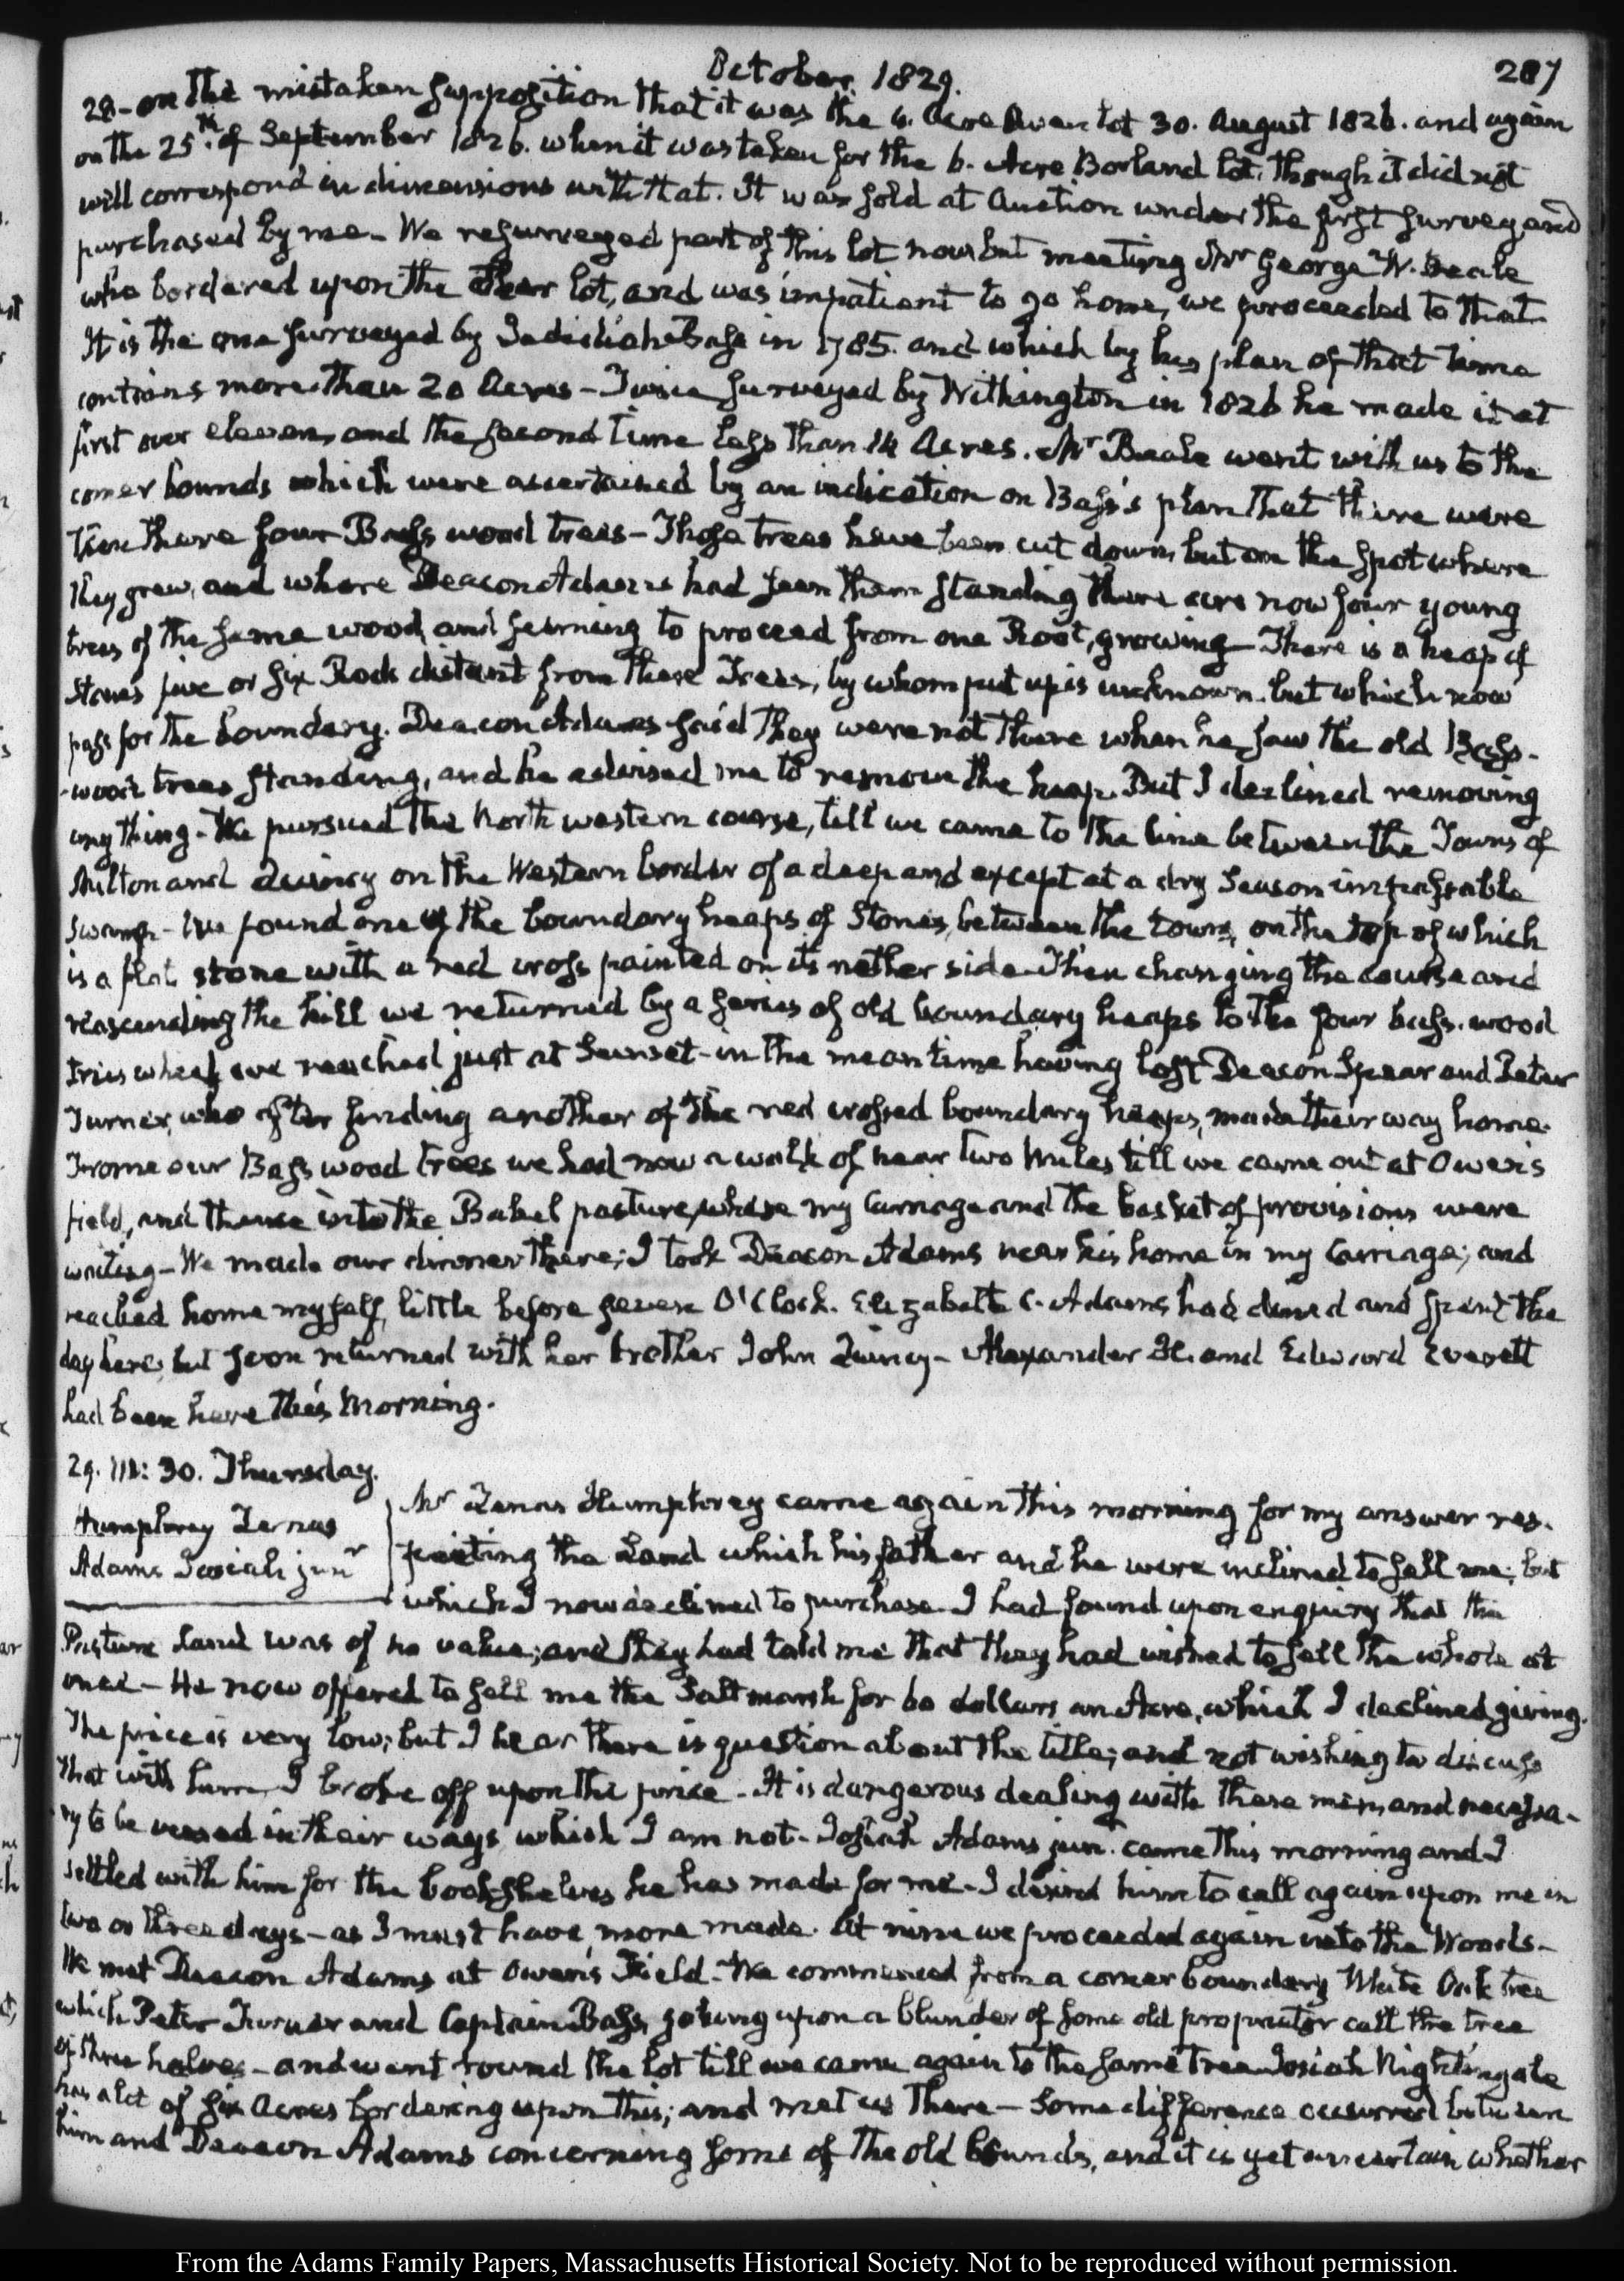 October. 1829.
287
28 - on the mistaken supposition that it was the 6. Acre Owen lot 30. August 1826. and again
on the 25th. of September 1826. when it was taken for the 6. Acre Borland lot. though it did not
well correspond in dimensions with that. It was sold at Auction under the first survey and
purchased by me - We resurveyed part of this lot now but meeting Mr George W. Beale
who bordered upon the other lot, and was impatient to go home, we proceeded to that
It is the one surveyed by Jedidiah Bass in 1785. and which by his plan of that time
contains more than 20 Acres - Twice surveyed by Withington in 1826 he made it at
first over eleven, and the second time less than 14 Acres. Mr Beale went with us to the
corner bounds which were ascertained by an indication on Bass's plan that there were
then there four Bass wood trees - Those trees have been cut down, but on the spot where
they grew, and where Deacon Adams had seen them standing there are now four young
trees of the same wood, and seeming to proceed from one Root, growing - There is a heap of
Stones five or six Rods distant from these Trees, by whom put up is unknown. but which now
pass for the boundary. Deacon Adams said they were not there when he saw the old Bass-
-wood trees standing, and he advised me to remove the heap. But I declined removing
any thing - We pursued the North western course, till we came to the line between the Towns of
Milton and Quincy on the Western border of a deep and except at a dry Season impassable
Swamp - We found one of the boundary heaps of Stones, between the towns, on the top of which
is a flat stone with a red cross painted on its nether side - Then changing the course and
reascending the hill we returned by a series of old boundary heaps to the four bass-wood
trees which we reached just at Sunset - in the mean time having lost Deacon Spear and Peter
Turner, who after finding another of the red crossed boundary heaps, made their way home.
From our Bass wood trees we had now a walk of near two Miles till we came out at Owen's
field, and thence into the Babel pasture, where my Carriage and the basket of provisions were
waiting - We made our dinner there; I took Deacon Adams near his home in my Carriage; and
reached home myself, little before seven O'Clock. Elizabeth C. Adams had dined and spent the
day here, but soon returned with her brother John Quincy - Alexander H. and Edward Everett
had been here this Morning.
29. III: 30. Thursday.
Humphrey Zenas
Adams Josiah junr
Mr Zenas Humphrey came again this morning for my answer res-
pecting the Land which his father and he were inclined to sell me; but
which I now declined to purchase. I had found upon enquiry that the
Pasture land was of no value; and they had told me that they had wished to sell the whole at
once - He now offered to sell me the Salt marsh for 60 dollars an Acre, which I declined giving.
The price is very low; but I hear there is question about the title; and not wishing to discuss
that with him, I broke off upon the price - It is dangerous dealing with these men, and necessa-
ry to be versed in their ways which I am not - Josiah Adams jun. came this morning and I
settled with him for the bookshelves he has made for me - I desired him to call again upon me in
two or three days - as I must have more made. At nine we proceeded again into the Woods -
We met Deacon Adams at Owen's Field - We commenced from a corner boundary White Oak tree
which Peter Turner and Captain Bass, joking upon a blunder of some old proprietor call the tree
of three halves - and went round the lot till we came again to the same tree. Josiah Nightingale
has a lot of six Acres bordering upon this; and met us there - Some difference occurred between
him and Deacon Adams concerning some of the old bounds, and it is yet uncertain whether
From the Adams Family Papers, Massachusetts Historical Society. Not to be reproduced without permission.